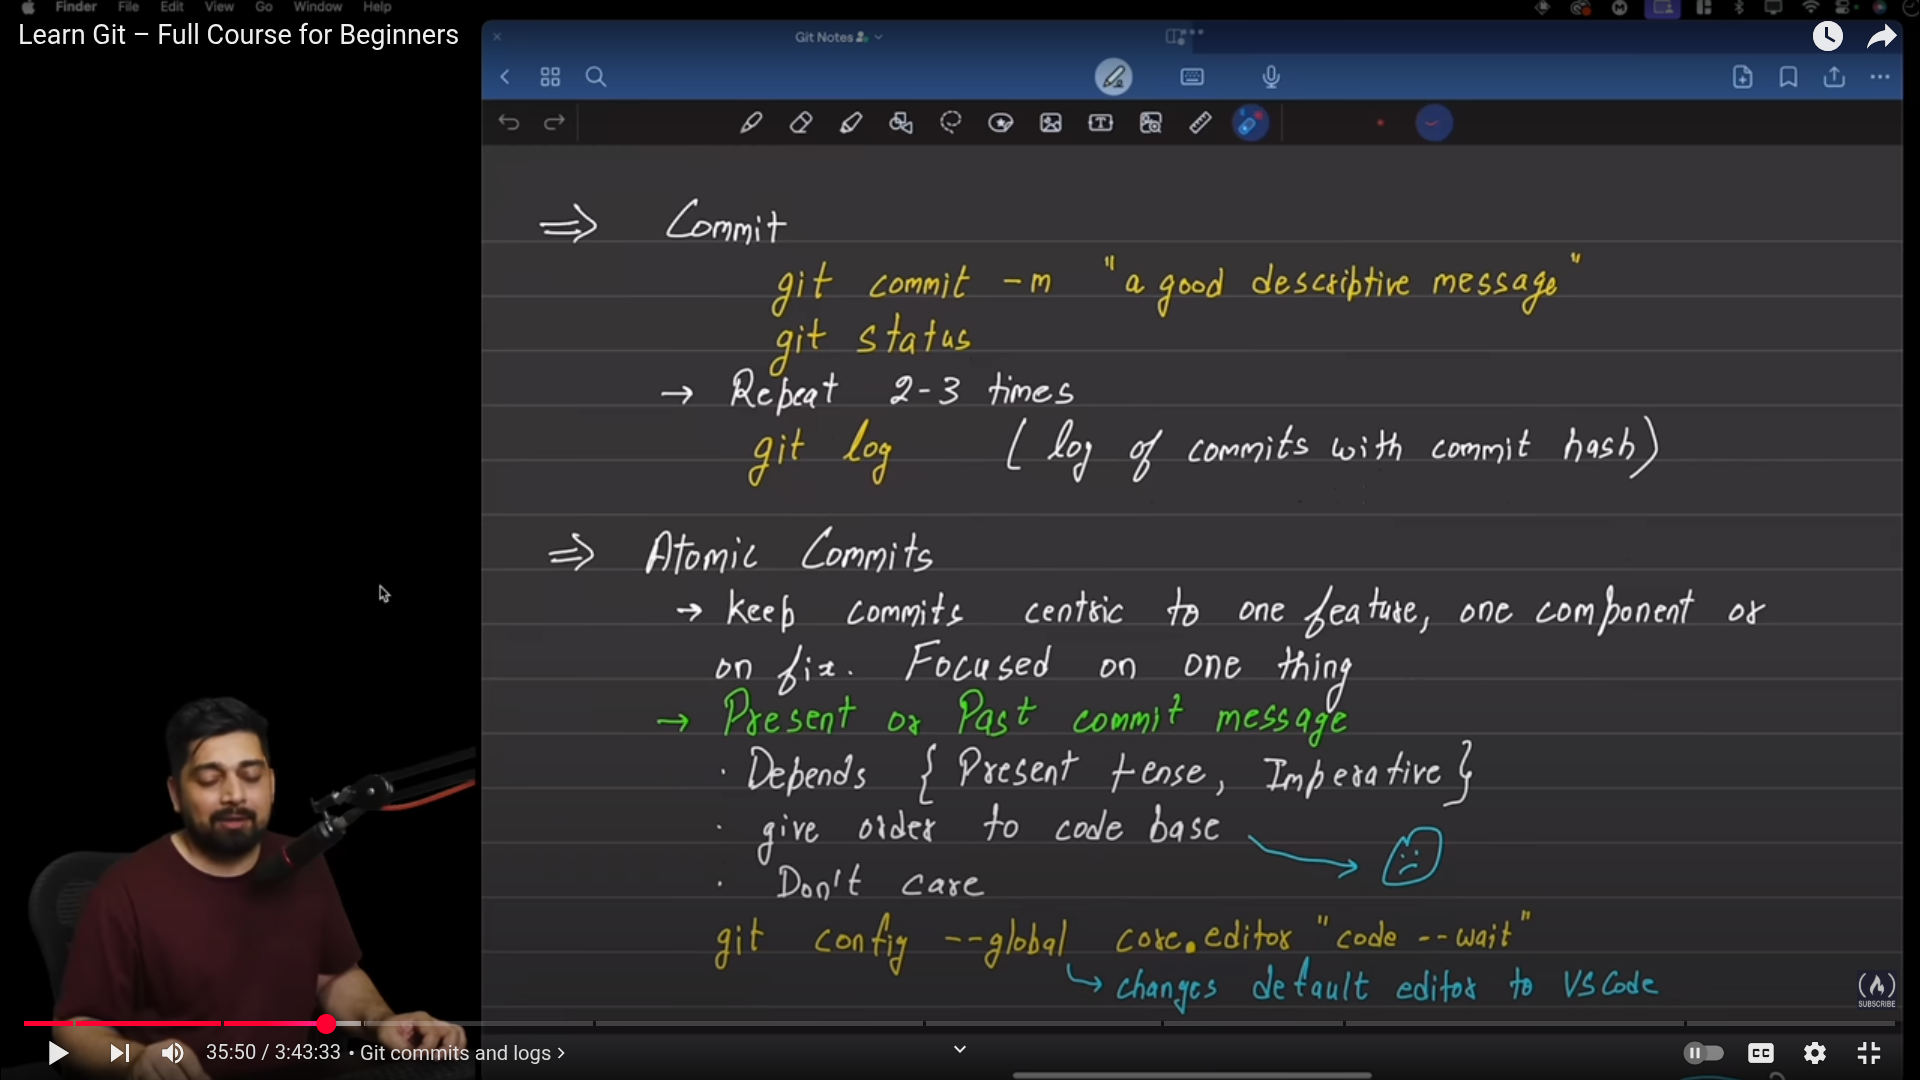 Finder File Edit View Go Window Help
Learn Git – Full Course for Beginners
Git Notes
⇒ Commit
git commit -m "a good descriptive message"
git status
→ Repeat 2-3 times
git log ( log of commits with commit hash)
⇒ Atomic Commits
→ keep commits centric to one feature, one component or
on fix. Focused on one thing
→ Present or Past commit message
· Depends { Present tense, Imperative }
· give order to code base
· Don't care
git config --global core.editor "code --wait"
↳ changes default editor to VS Code
SUBSCRIBE
35:50 / 3:43:33 • Git commits and logs >
CC